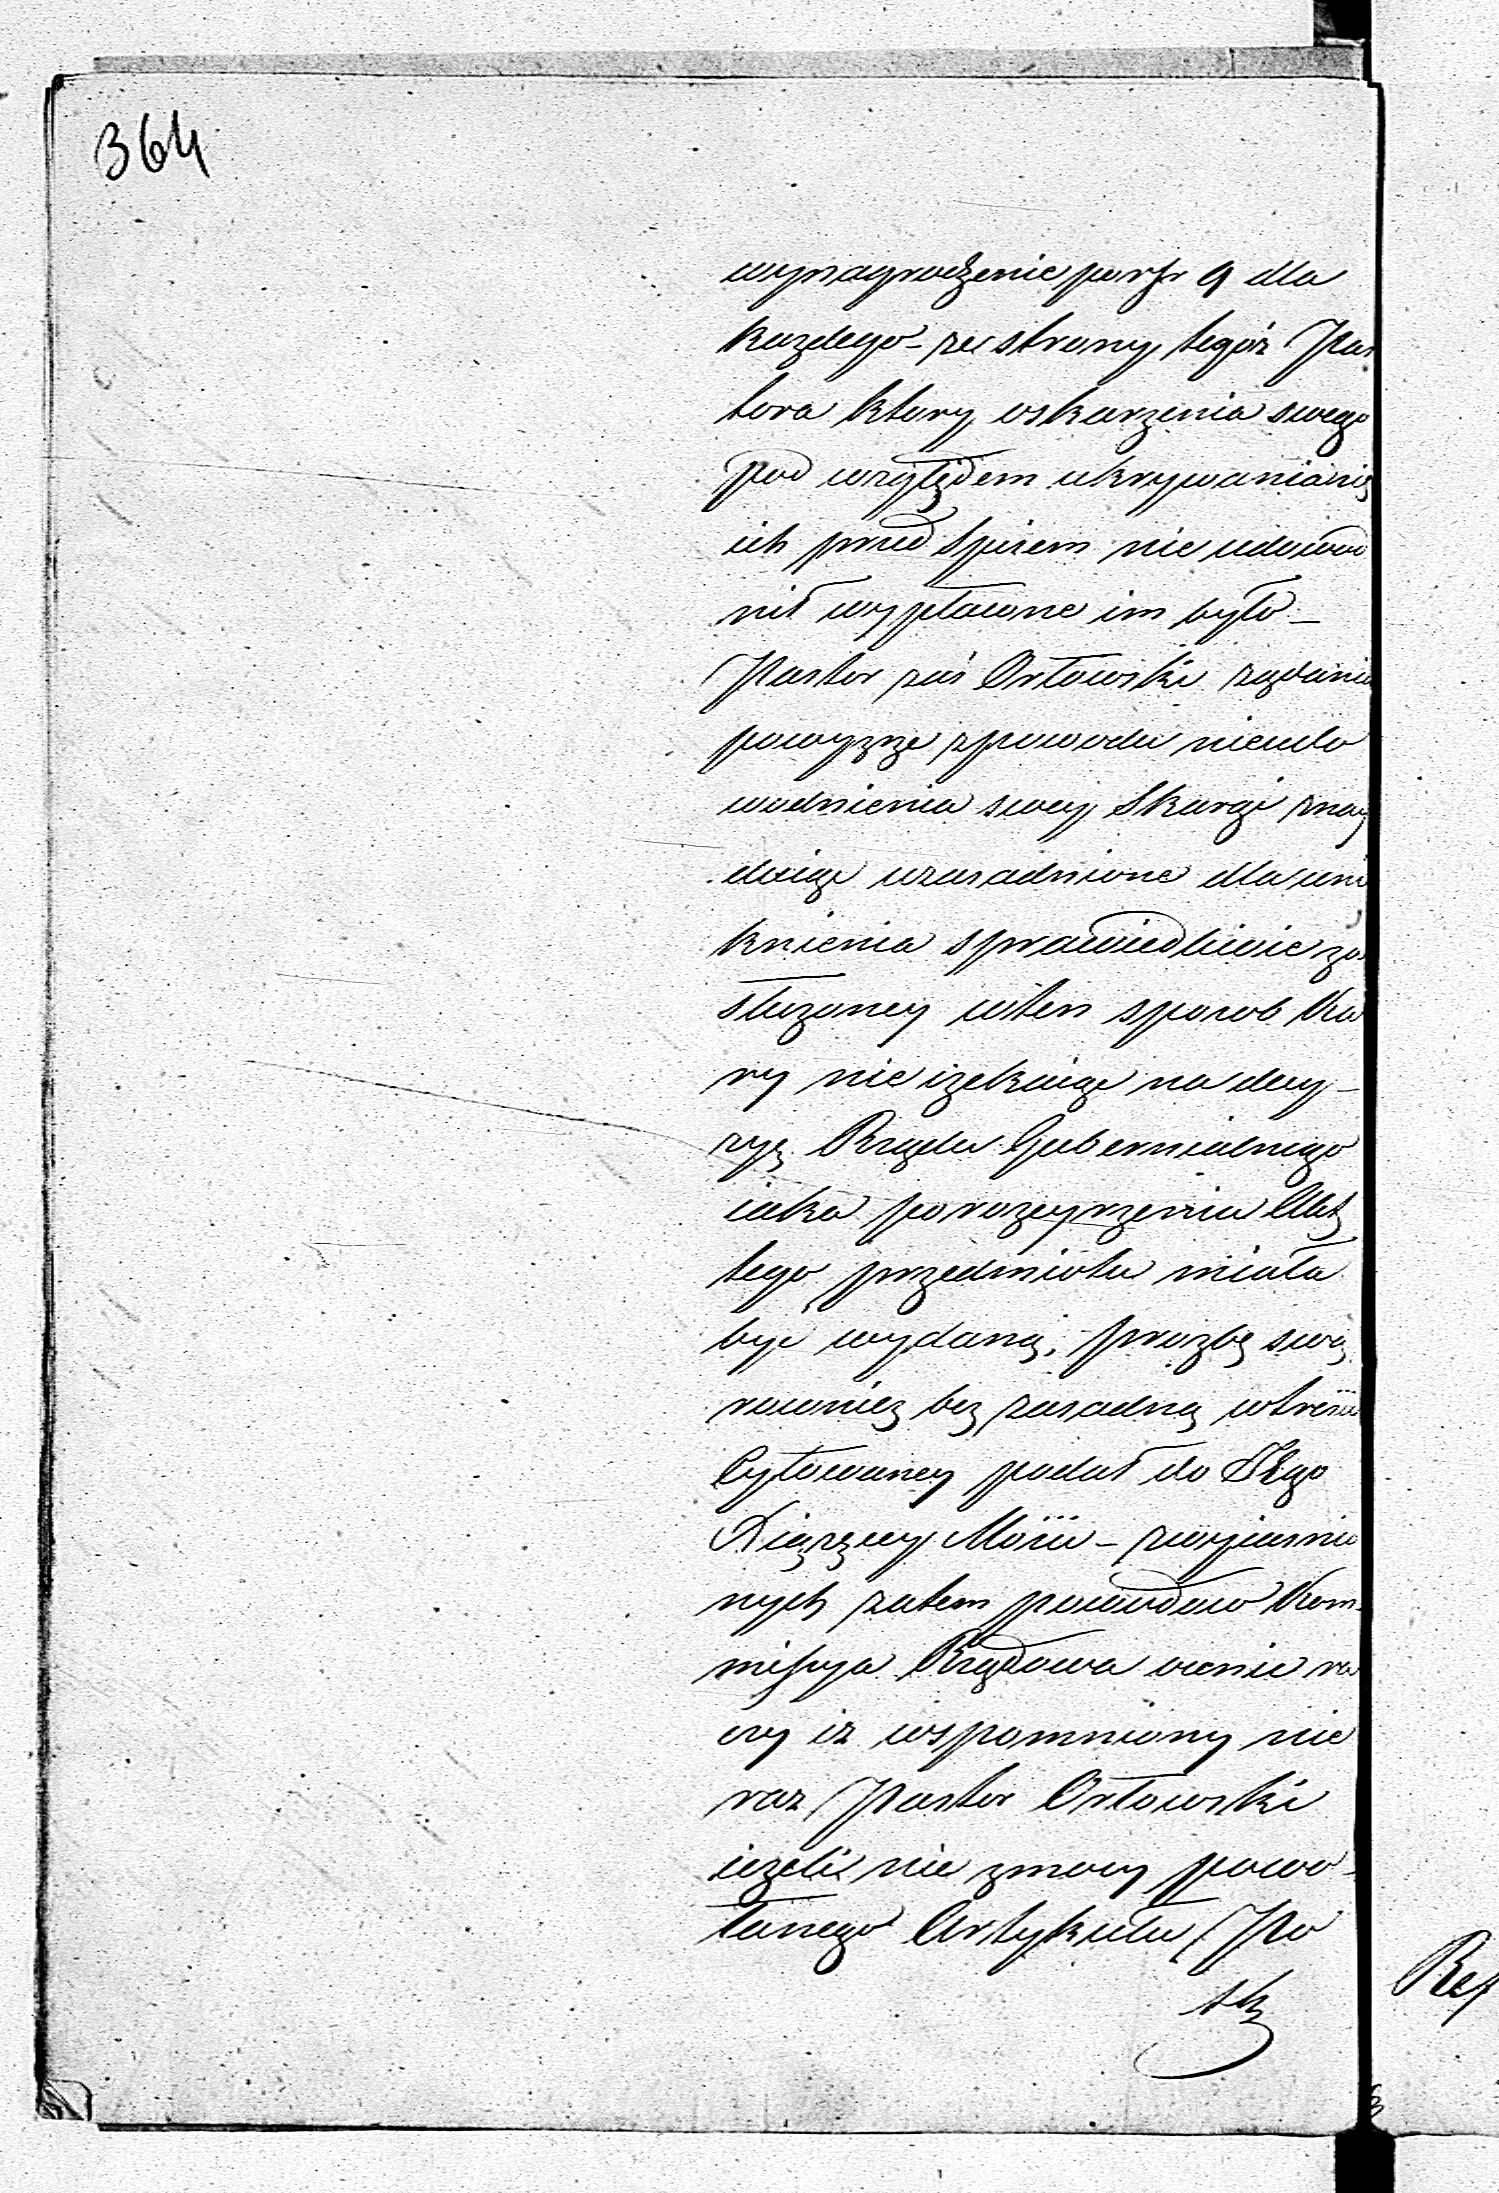 364
wynagrodzenie po rsr 9 dla
kazdego ze strony tegoż Pas
tora ktory oskarzenia swego
pod względem ukrywania się
ich przed Spisem nie udowod
nił wypłacone im było –
Pastor zaś Orłowski rządanie
powyzsze zpowodu nieudo
wodnienia swey Skargi znay
duiąc uzasadnione dla uni
knienia sprawiedliwie za
służoney wten sposob Ka
ry nie czekaiąc na decy–
zyę Rządu Gubernialnego
iaka porozeyrzeniu Akt
tego przedmiotu miała
być wydaną, prozbę swą
rowniez bez zasadną wtresci
Cytowaney podał do JEgo
Xiążęcey Mości – zwyiasnio
nych zatem powodów Kom
missya Rządowa ocenić ra
czy iz wspomniony nie
raz Pastor Orłowski
iezeli nie zmocy powo–
łanego Artykułu Po
stę
Rep